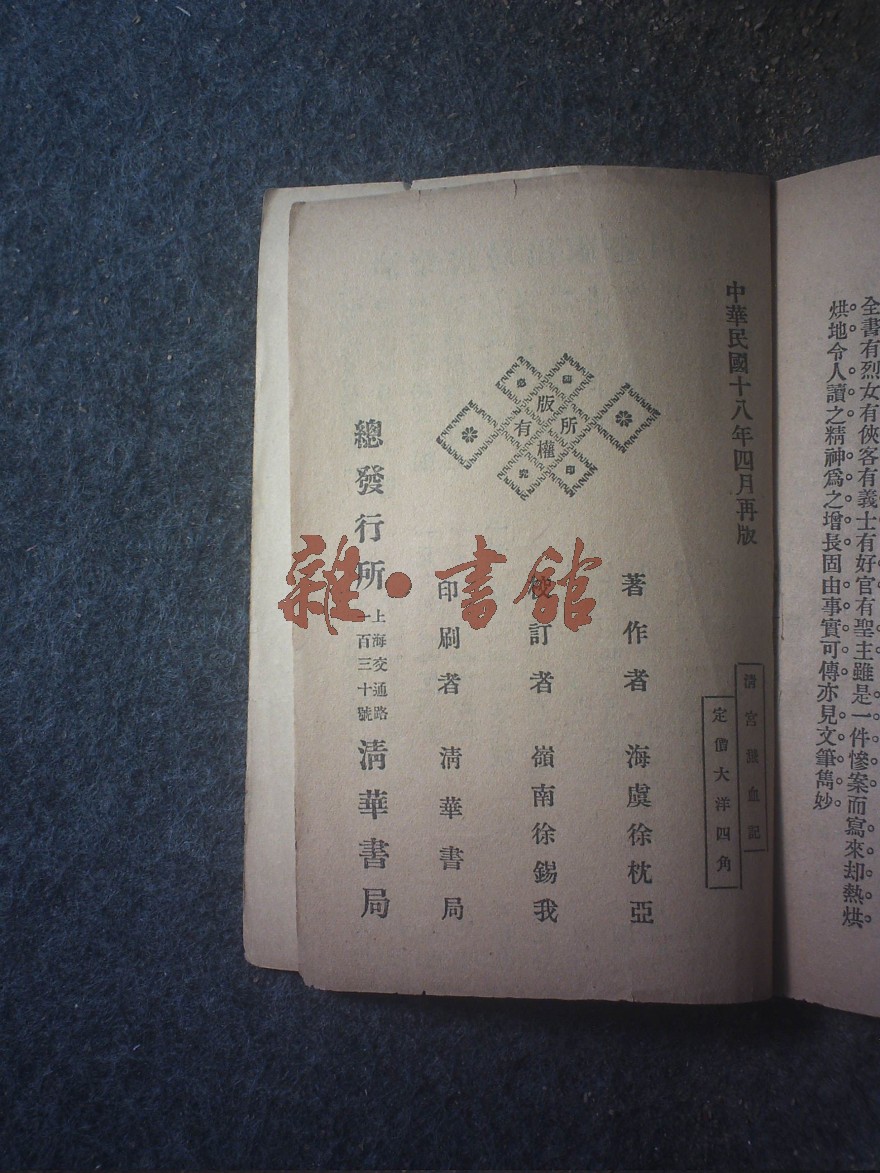 全書有烈女有俠客有義士有好官有聖主雖是一件慘案而寫來却熱烘
烘地令人讀之精神爲之增長固由事實可傳亦見文筆雋妙
中華民國十八年四月再版
清宮血記
定價大洋四角
版權所有
翻印必究
著作者 海虞徐枕亞
校訂者 嶺南徐錫我
印刷者 清華書局
總發行所 上海交通路一百三十號 清華書局
雜·書館